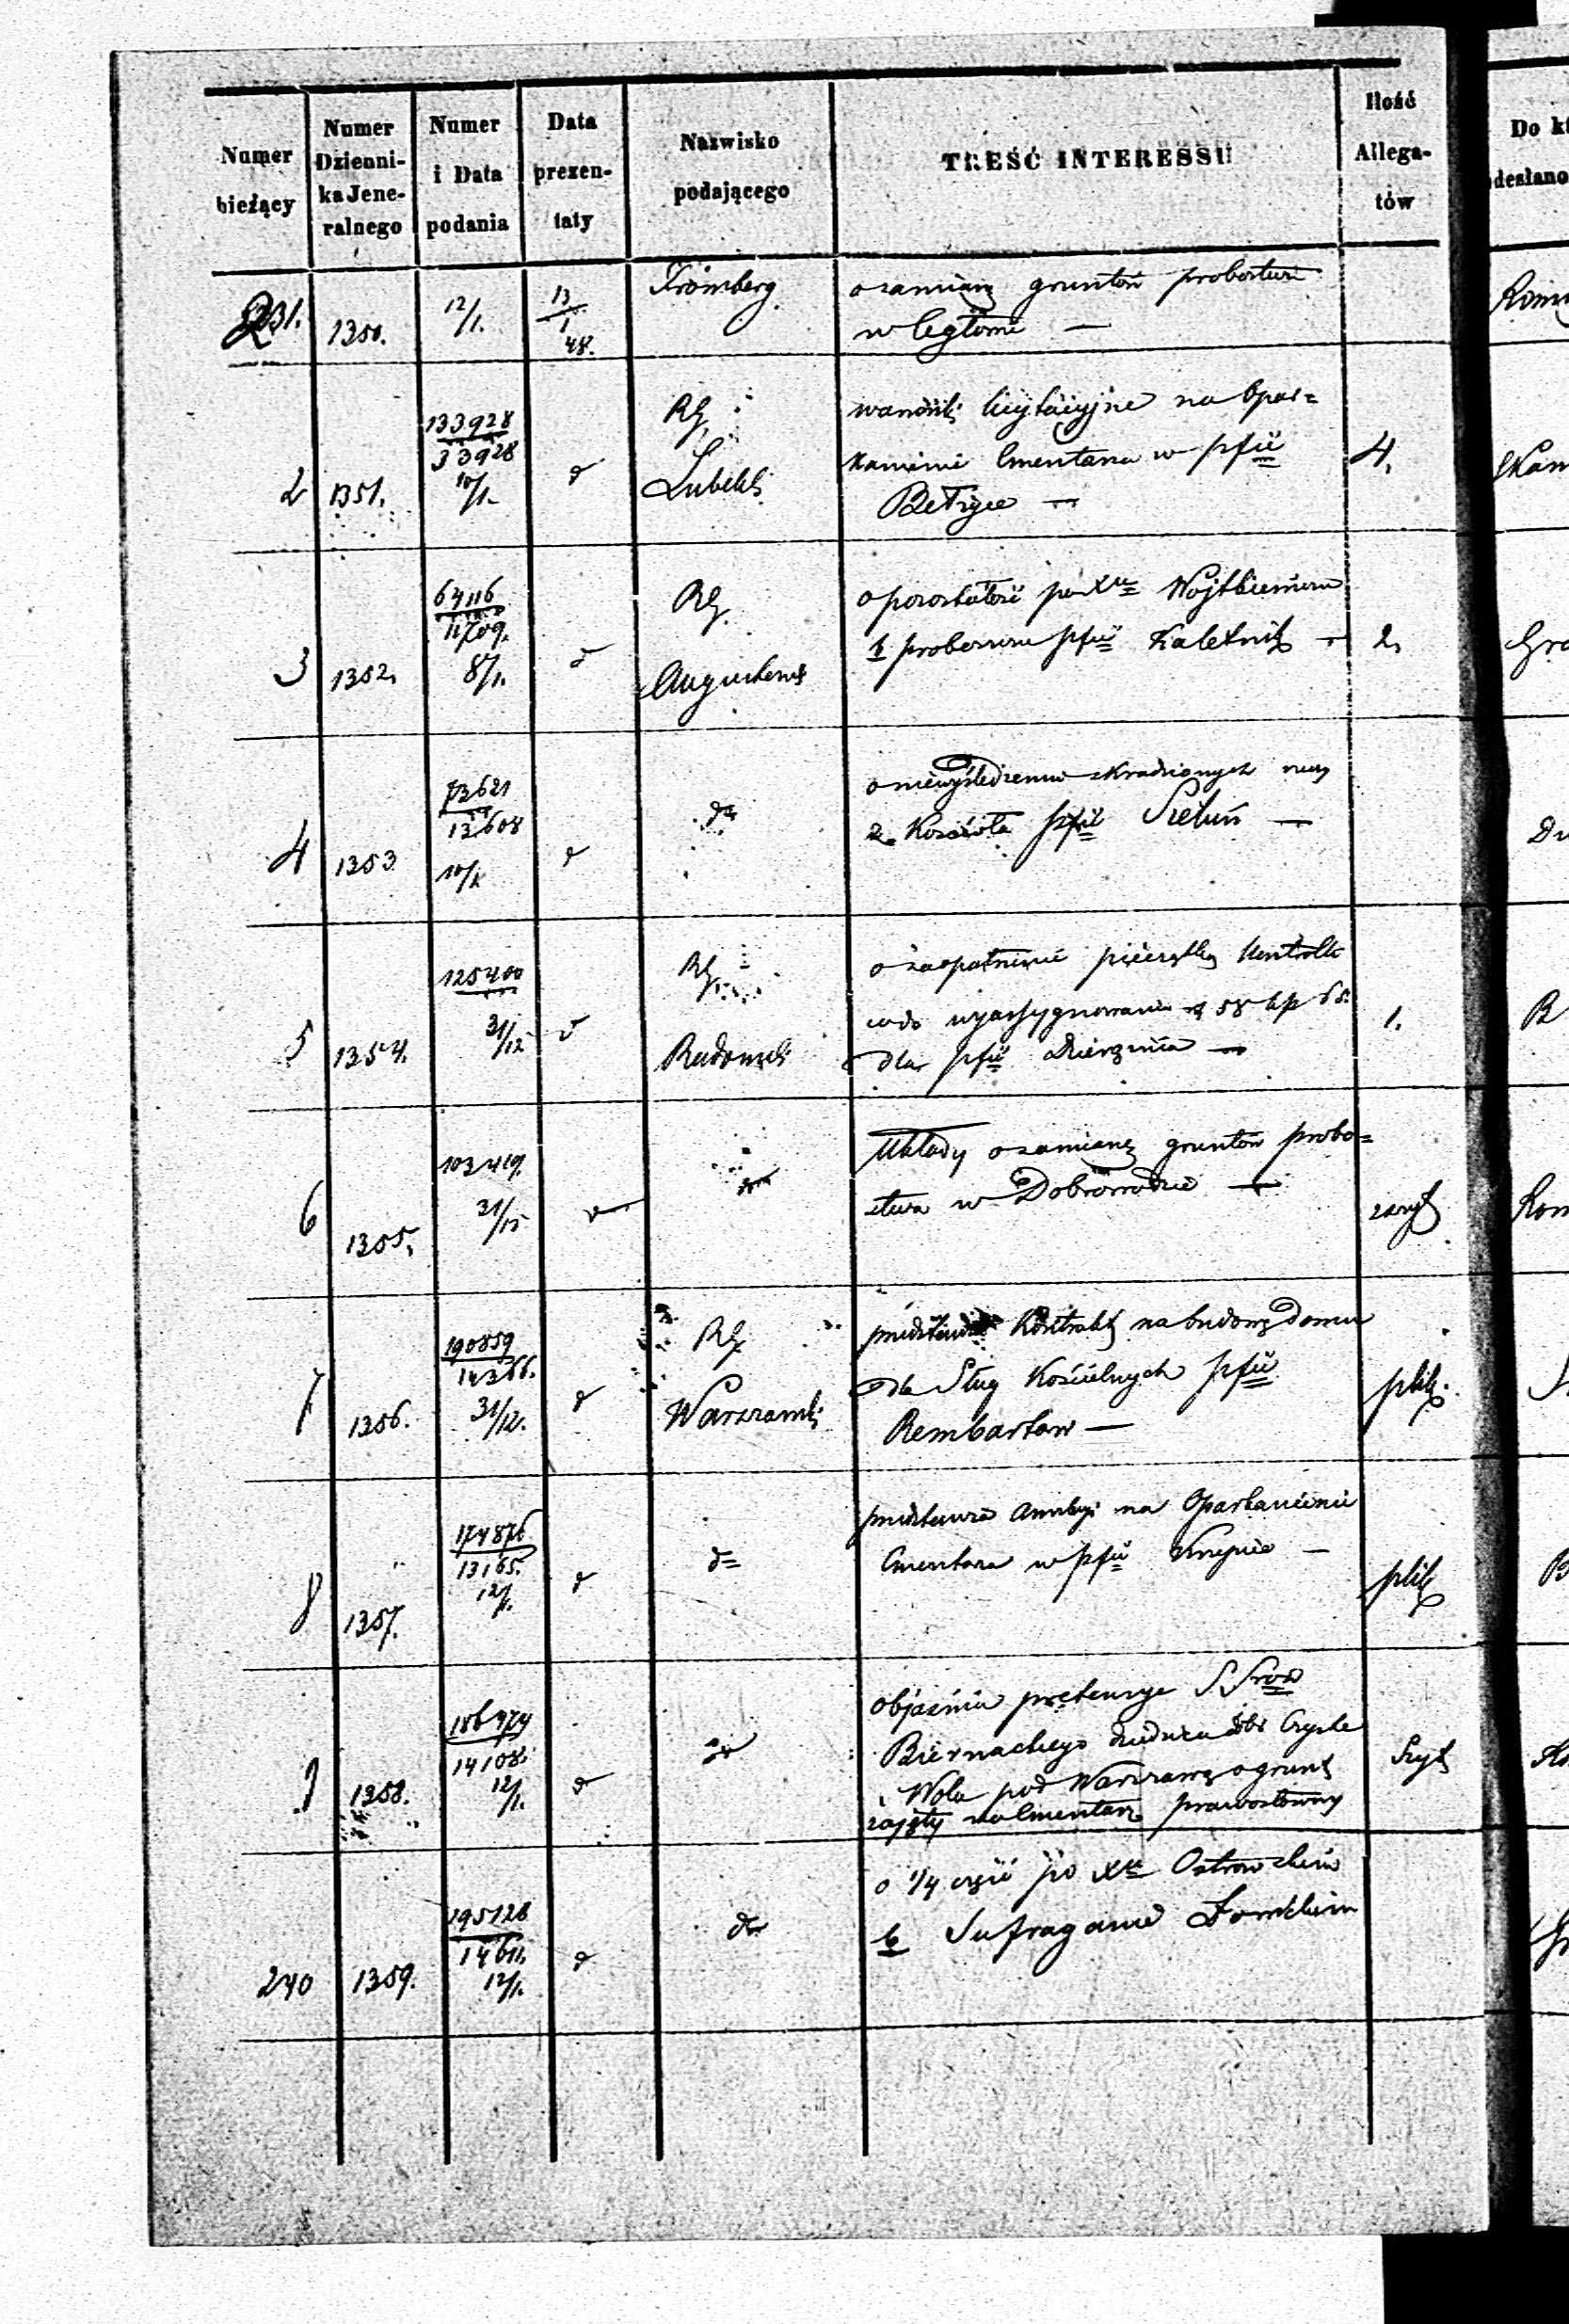 Numer bieżący
Numer Dzienni- ka Jene- ralnego
Numer i Data podania
Data prezen- taty
Nazwisko podającego
TREŚĆ INTERESSU
Ilość Allega- tów
Do kt
desłano
231. 1350. 12/1. 13/1 48. Fromberg o zamianę gruntów probostwa
w Cegłowie —
2 1351. 133928 33928 10/1. d RG Lubelski warunki licytacyjne na Opar=
kanienie Cmentarza w pfii 4.
Bełżyce —
3 1352. 64116 11709. 8/1. d RG Augustows o pozostałość po Xu Wojtkiewiczu
b proboszczu pfii Kaletnik — 2.
4 1353 73621 13608 10/1 d do o niewyśledzeniu skradzionych rzeczy
z Kościoła pfii Sieluń —
5 1354. 125400 31/12 d RG Radomski o zaopatrzenie pieczątką Kontrolli
co do wyassygnowania rs 58 kp
dla pfii — 1.
6 1355. 103419. 31/12 d do Układy o zamianę gruntów probo=
stwa w Dobrowodzie — zeszyt
7 1356. 190859 14366. 31/12. d RG Warszawski przedstawia Kontrakt na budowę Domu
dla Sług Kościelnych pfii plik.
Rembertow —
8 1357. 174876 13165. 12/1. d do przedstawia Anszlagi na Oparkanienie
Cmentarza w pfii — plik
9 1358. 186974 14108. 12/1. d do objaśnia pretensye SSrów
Biernackiego dziedzica dóbr Czyste
i Wola pod Warszawą o grunt Szyt
zajęty na Cmentarz prawosławny
240 1359. 195128 14611. 12/1. d do o 1/4 część po Xu Ostrowskim
b Sufraganie Łowickim